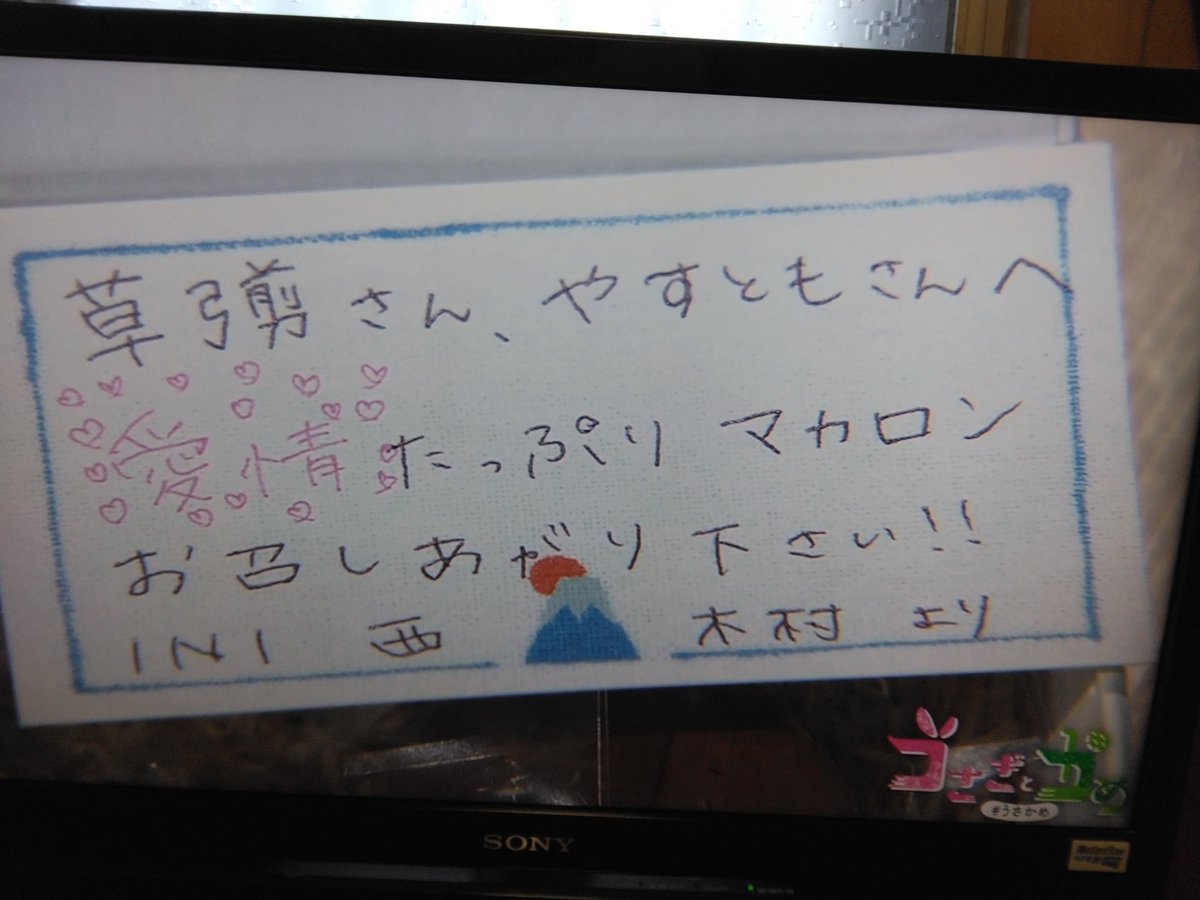 草彅さん、やすともさんへ
愛情たっぷりマカロン
お召しあがり下さい!!
INI 西 木村 より
うさぎとかめ
#うさかめ
SONY